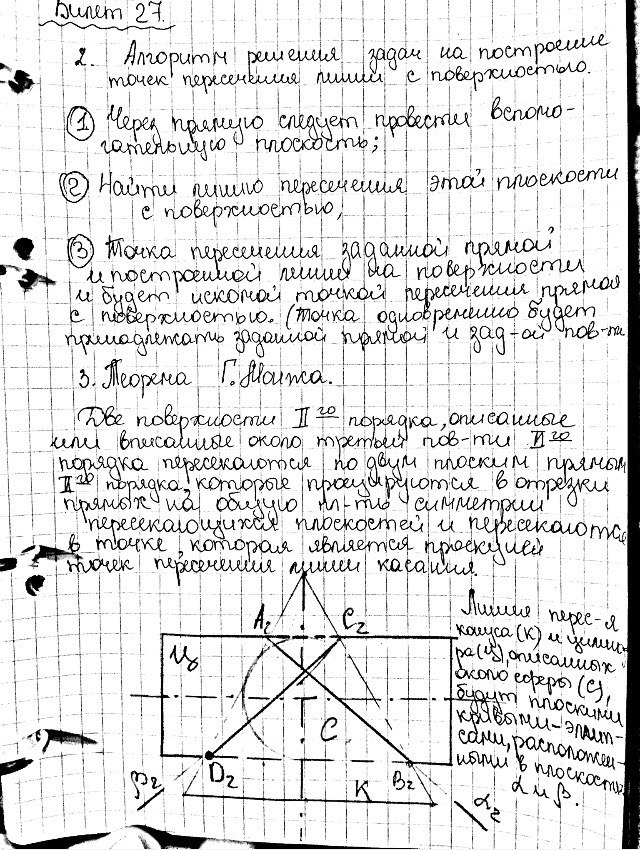 Билет 27.
2. Алгоритм решения задач на построение
точек пересечения линии с поверхностью.
① Через прямую следует провести вспомо-
гательную плоскость;
② Найти линию пересечения этой плоскости
с поверхностью;
③ Точка пересечения заданной прямой
и построенной линии на поверхности
и будет искомой точкой пересечения прямой
с поверхностью. (Точка одновременно будет
принадлежать заданной прямой и зад-ой пов-ти
3. Теорема Г. Монжа.
Две поверхности II го порядка, описанные
или вписанные около третьей пов-ти II го
порядка пересекаются по двум плоским прямым
II го порядка, которые проецируются в отрезки
прямых на общую пл-ть симметрии
пересекающихся плоскостей и пересекаются
в точке, которая является проекцией
точек пересечения линии касания.
Линия перес-я
конуса (К) и цилинд-
ра (Ц), описанных
около сферы (С),
будут плоскими
кривыми-эллип-
сами, расположен-
ными в плоскостях
α и β.
A₂ C₂
Ц
C
D₂ B₂
β₂ К α₂